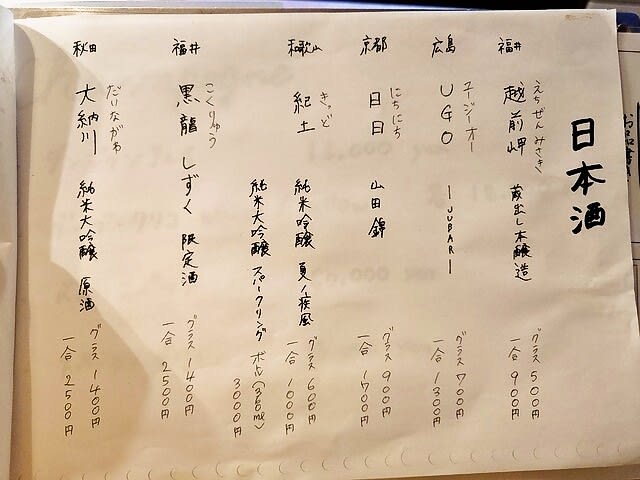 日本酒
福井
えちぜんみさき
越前岬 蔵出し本醸造
グラス 500円
一合 900円
広島
ユージーオー
UGO ーJUBARー
グラス 700円
一合 1300円
京都
にちにち
日日 山田錦
グラス 900円
一合 1700円
和歌山
きっど
紀土 純米吟醸 夏ノ疾風
グラス 600円
一合 1000円
純米大吟醸 スパークリング ボトル(360ml)
3000円
福井
こくりゅう
黒龍 しずく 限定酒
グラス 1400円
一合 2500円
秋田
だいながわ
大納川 純米大吟醸 原酒
グラス 1400円
一合 2500円